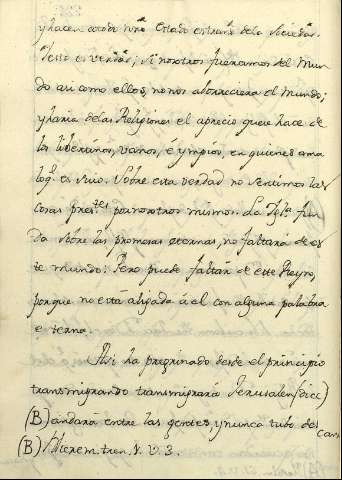 y hacen a todo nrō Estado extraño de la Sociedad.
Testo es verdad; si nosotros fueramos del Mun
do asi como ellos, no nos aborreciera el mundo;
y haria de las Religiones el aprecio que hace de
los libertinos, vanos, é ympios, en quienes ama
lo q.e es suio. Sobre esta verdad no sentimos las
cosas pres.tes por nosotros mismos. La Ygl.a fun
da sobre las promesas eternas, no faltará de es
te mundo: Pero puede faltar de este Reyno,
porque no está aligada á el con alguna palabra
eterna.
Asi ha peregrinado desde el principio
transmigrando transmigrará Jerusalen (dice)
(B) andará entre las gentes, y nunca tubo des
can
(B) Hierem. tren. 1. v. 3.